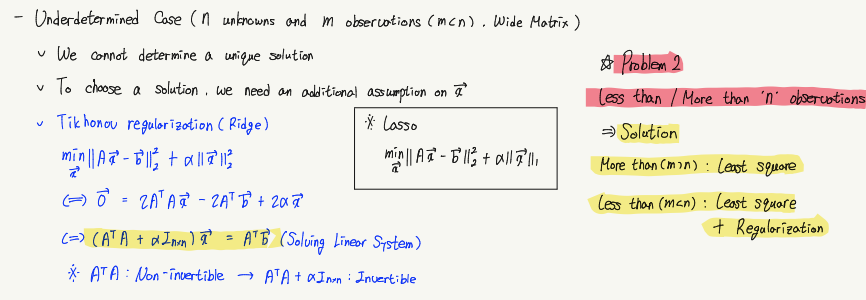 - Underdetermined Case (n unknowns and m observations (m<n). Wide Matrix)
✓ We cannot determine a unique solution
✓ To choose a solution, we need an additional assumption on x⃗
✓ Tikhonov regularization (Ridge)
min_x⃗ ‖Ax⃗ - b⃗‖₂² + α‖x⃗‖₂²
⟺ 0⃗ = 2AᵀAx⃗ - 2Aᵀb⃗ + 2αx⃗
⟺ (AᵀA + αIₙₓₙ)x⃗ = Aᵀb⃗ (Solving Linear System)
※ AᵀA : Non-invertible → AᵀA + αIₙₓₙ : Invertible
※ Lasso
min_x⃗ ‖Ax⃗ - b⃗‖₂² + α‖x⃗‖₁
☆ Problem 2
Less than / More than 'n' observations
⇒ Solution
More than (m>n) : Least square
Less than (m<n) : Least square
+ Regularization